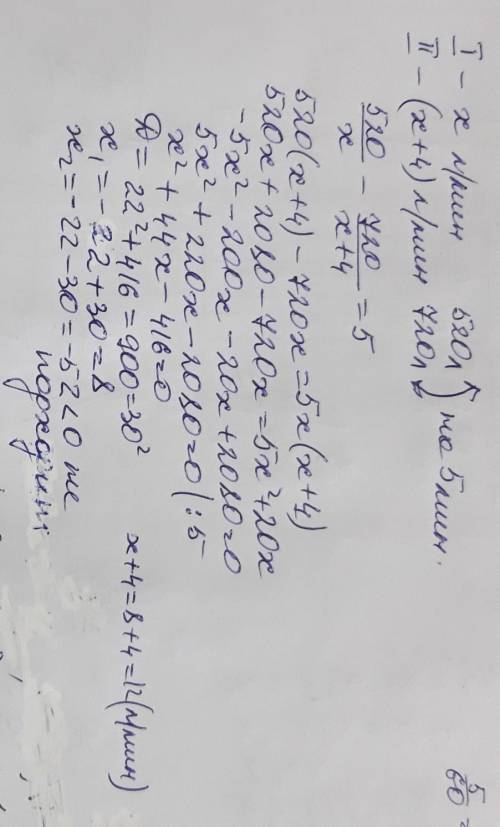 I - x л/мин 520л ↑
II - (x+4) л/мин 720л ↓ на 5 мин.
520/x - 720/(x+4) = 5
520(x+4) - 720x = 5x(x+4)
520x + 2080 - 720x = 5x² + 20x
-5x² - 200x - 20x + 2080 = 0
5x² + 220x - 2080 = 0 | : 5
x² + 44x - 416 = 0
D = 22² + 416 = 900 = 30²
x₁ = -22 + 30 = 8
x₂ = -22 - 30 = -52 < 0 не
подходит
x+4 = 8+4 = 12 (л/мин)
5/60 =